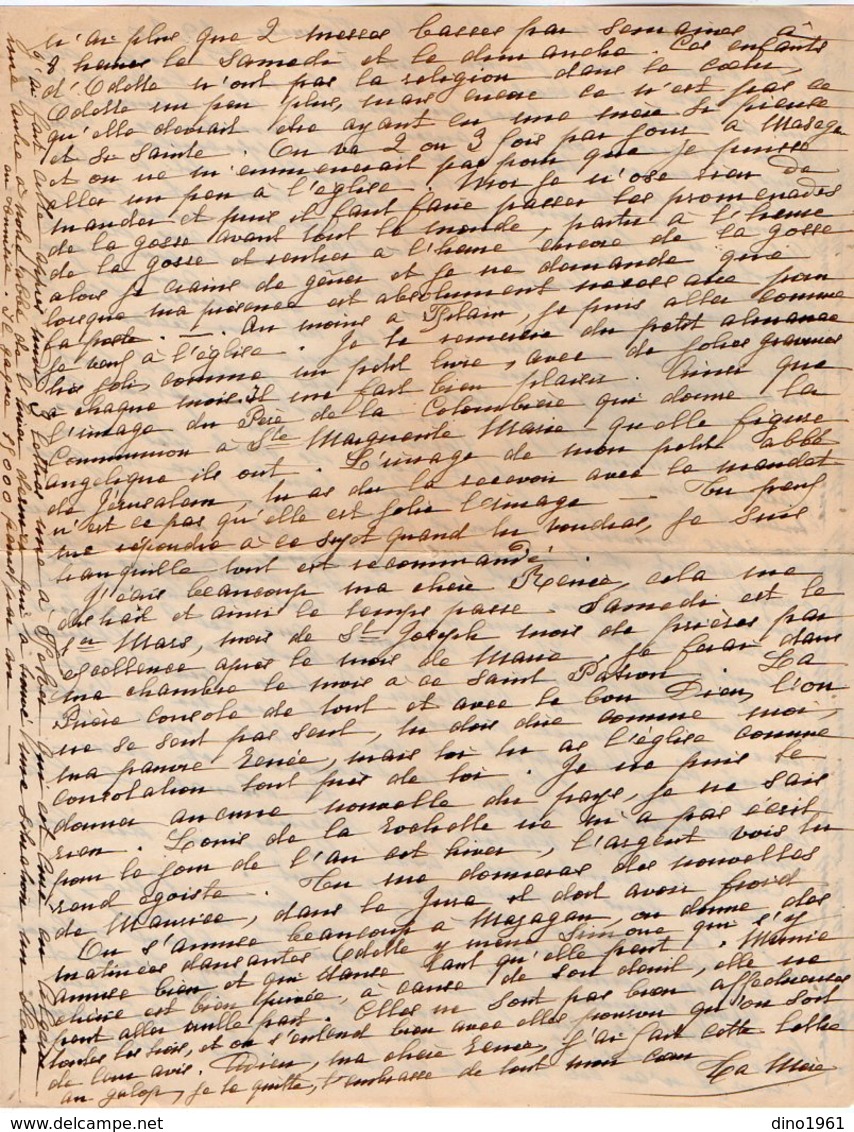 n'ai plus que 2 messes basses par semaines à
8 heures le samedi et le dimanche. Ces enfants
d'Odette n'ont pas la religion dans le cœur,
Odette un peu plus, mais encore ce n'est pas ce
qu'elle devrait être ayant eu une mère si pieuse
et si sainte. On va 2 ou 3 fois par jour à Mazagan
et on ne m'emmenerait pas pour que je puisse
aller un peu à l'église. Moi je n'ose rien de
mander et puis il faut faire passer les promenades
de la gosse avant tout le monde, partir à l'heure
de la gosse et rentrer à l'heure encore de la gosse
alors je crains de gêner et je ne demande que
lorsque ma présence est absolument nécessaire pour
la poste. — Au moins à je puis aller comme
je veux à l'église. Je te remercie du petit almanach
très joli, comme un petit livre, avec de jolies gravures
à chaque mois. Il me fait bien plaisir. Ainsi que
l'image du Père de la Colombière qui donne la
Communion à Ste Marguerite Marie quelle figure
angélique ils ont. L'image de mon petit abbé
de Jérusalem, tu as dû la recevoir avec le mandat
n'est ce pas qu'elle est jolie l'image. Tu peux
me répondre à ce sujet quand tu voudras, je suis
tranquille tout est recommandé.
J'écris beaucoup ma chère Renée, cela me
distrait et ainsi le temps passe. Samedi est le
1er Mars, mois de St Joseph mois de prières par
excellence après le mois de Marie, je ferai dans
ma chambre le mois à ce Saint Patron. La
Prière console de tout et avec le bon Dieu, l'on
ne se sent pas seul, tu dois dire comme moi,
ma pauvre Renée, mais toi tu as l'église comme
consolation tout près de toi. Je ne puis te
donner aucune nouvelle du pays, je ne sais
rien. Louis de la Rochelle ne m'a pas écrit
pour le jour de l'an cet hiver, l'argent vois tu
rend égoïste. Tu me donneras des nouvelles
de Maurice, dans le Jura il doit avoir froid
On s'amuse beaucoup à Mazagan, on donne des
matinées dansantes Odette y mène Simone qui s'y
amuse bien et qui danse tant qu'elle peut. Mimie
chérie est bien privée, à cause de son deuil, elle ne
peut aller nulle part. Elles ne sont pas bien affectueuses
toutes les trois, et on s'entend bien avec elles pourvu qu'on soit
de leur avis. Adieu, ma chère Renée, j'ai fait cette lettre
au galop, je te quitte, t'embrasse de tout mon cœur
Ta Mère
j'ai fait cette après midi 3 lettres une à qui est
une autre à notre table de l'hiver dernier qui a trouvé une situation
au Il gagne 18000 francs par an —
dino1961